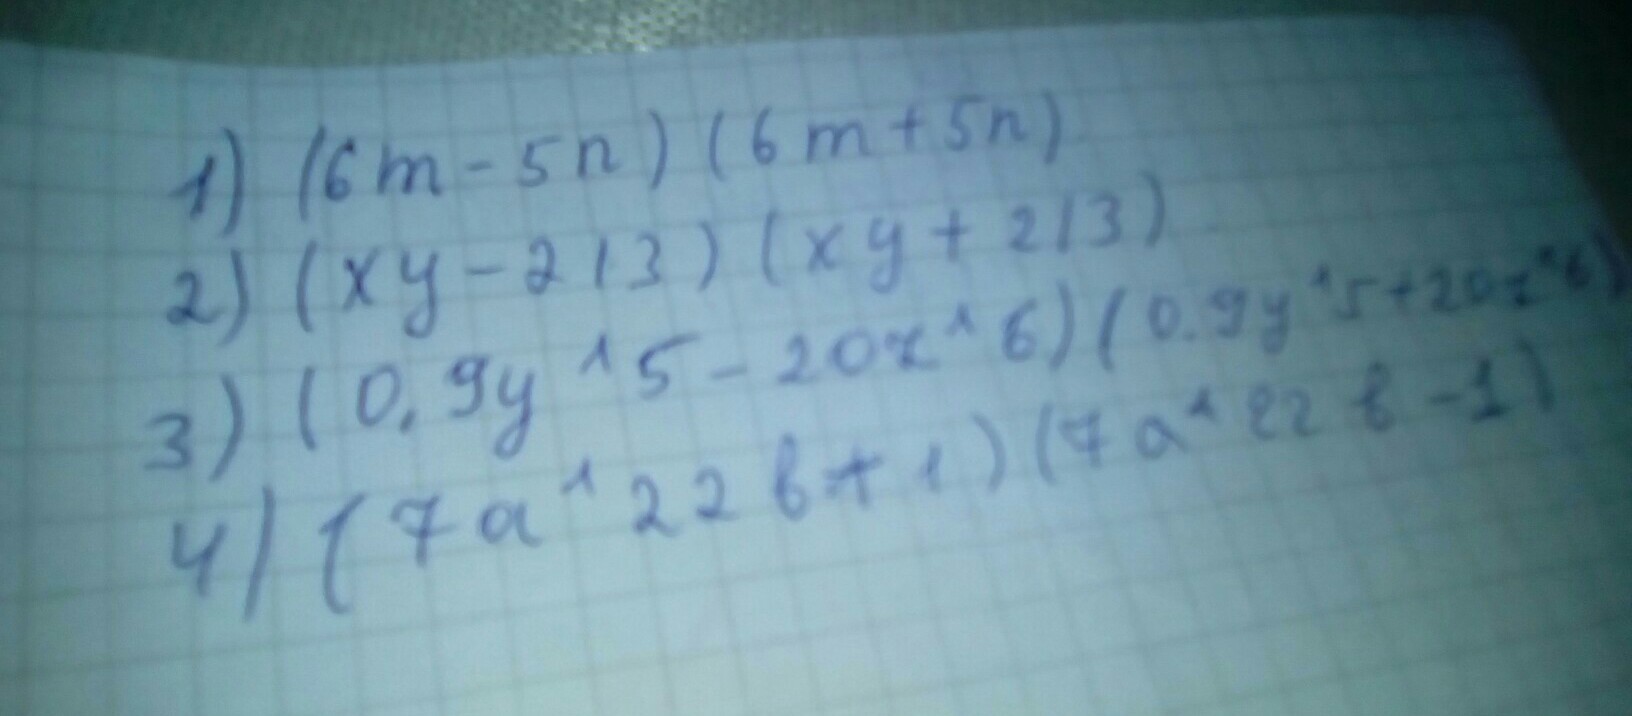 1) (6m-5n) (6m+5n)
2) (xy-2/3) (xy+2/3)
3) (0,9y^5-20x^6) (0.9y^5+20x^6)
4) (7a^22b+1) (7a^22b-1)